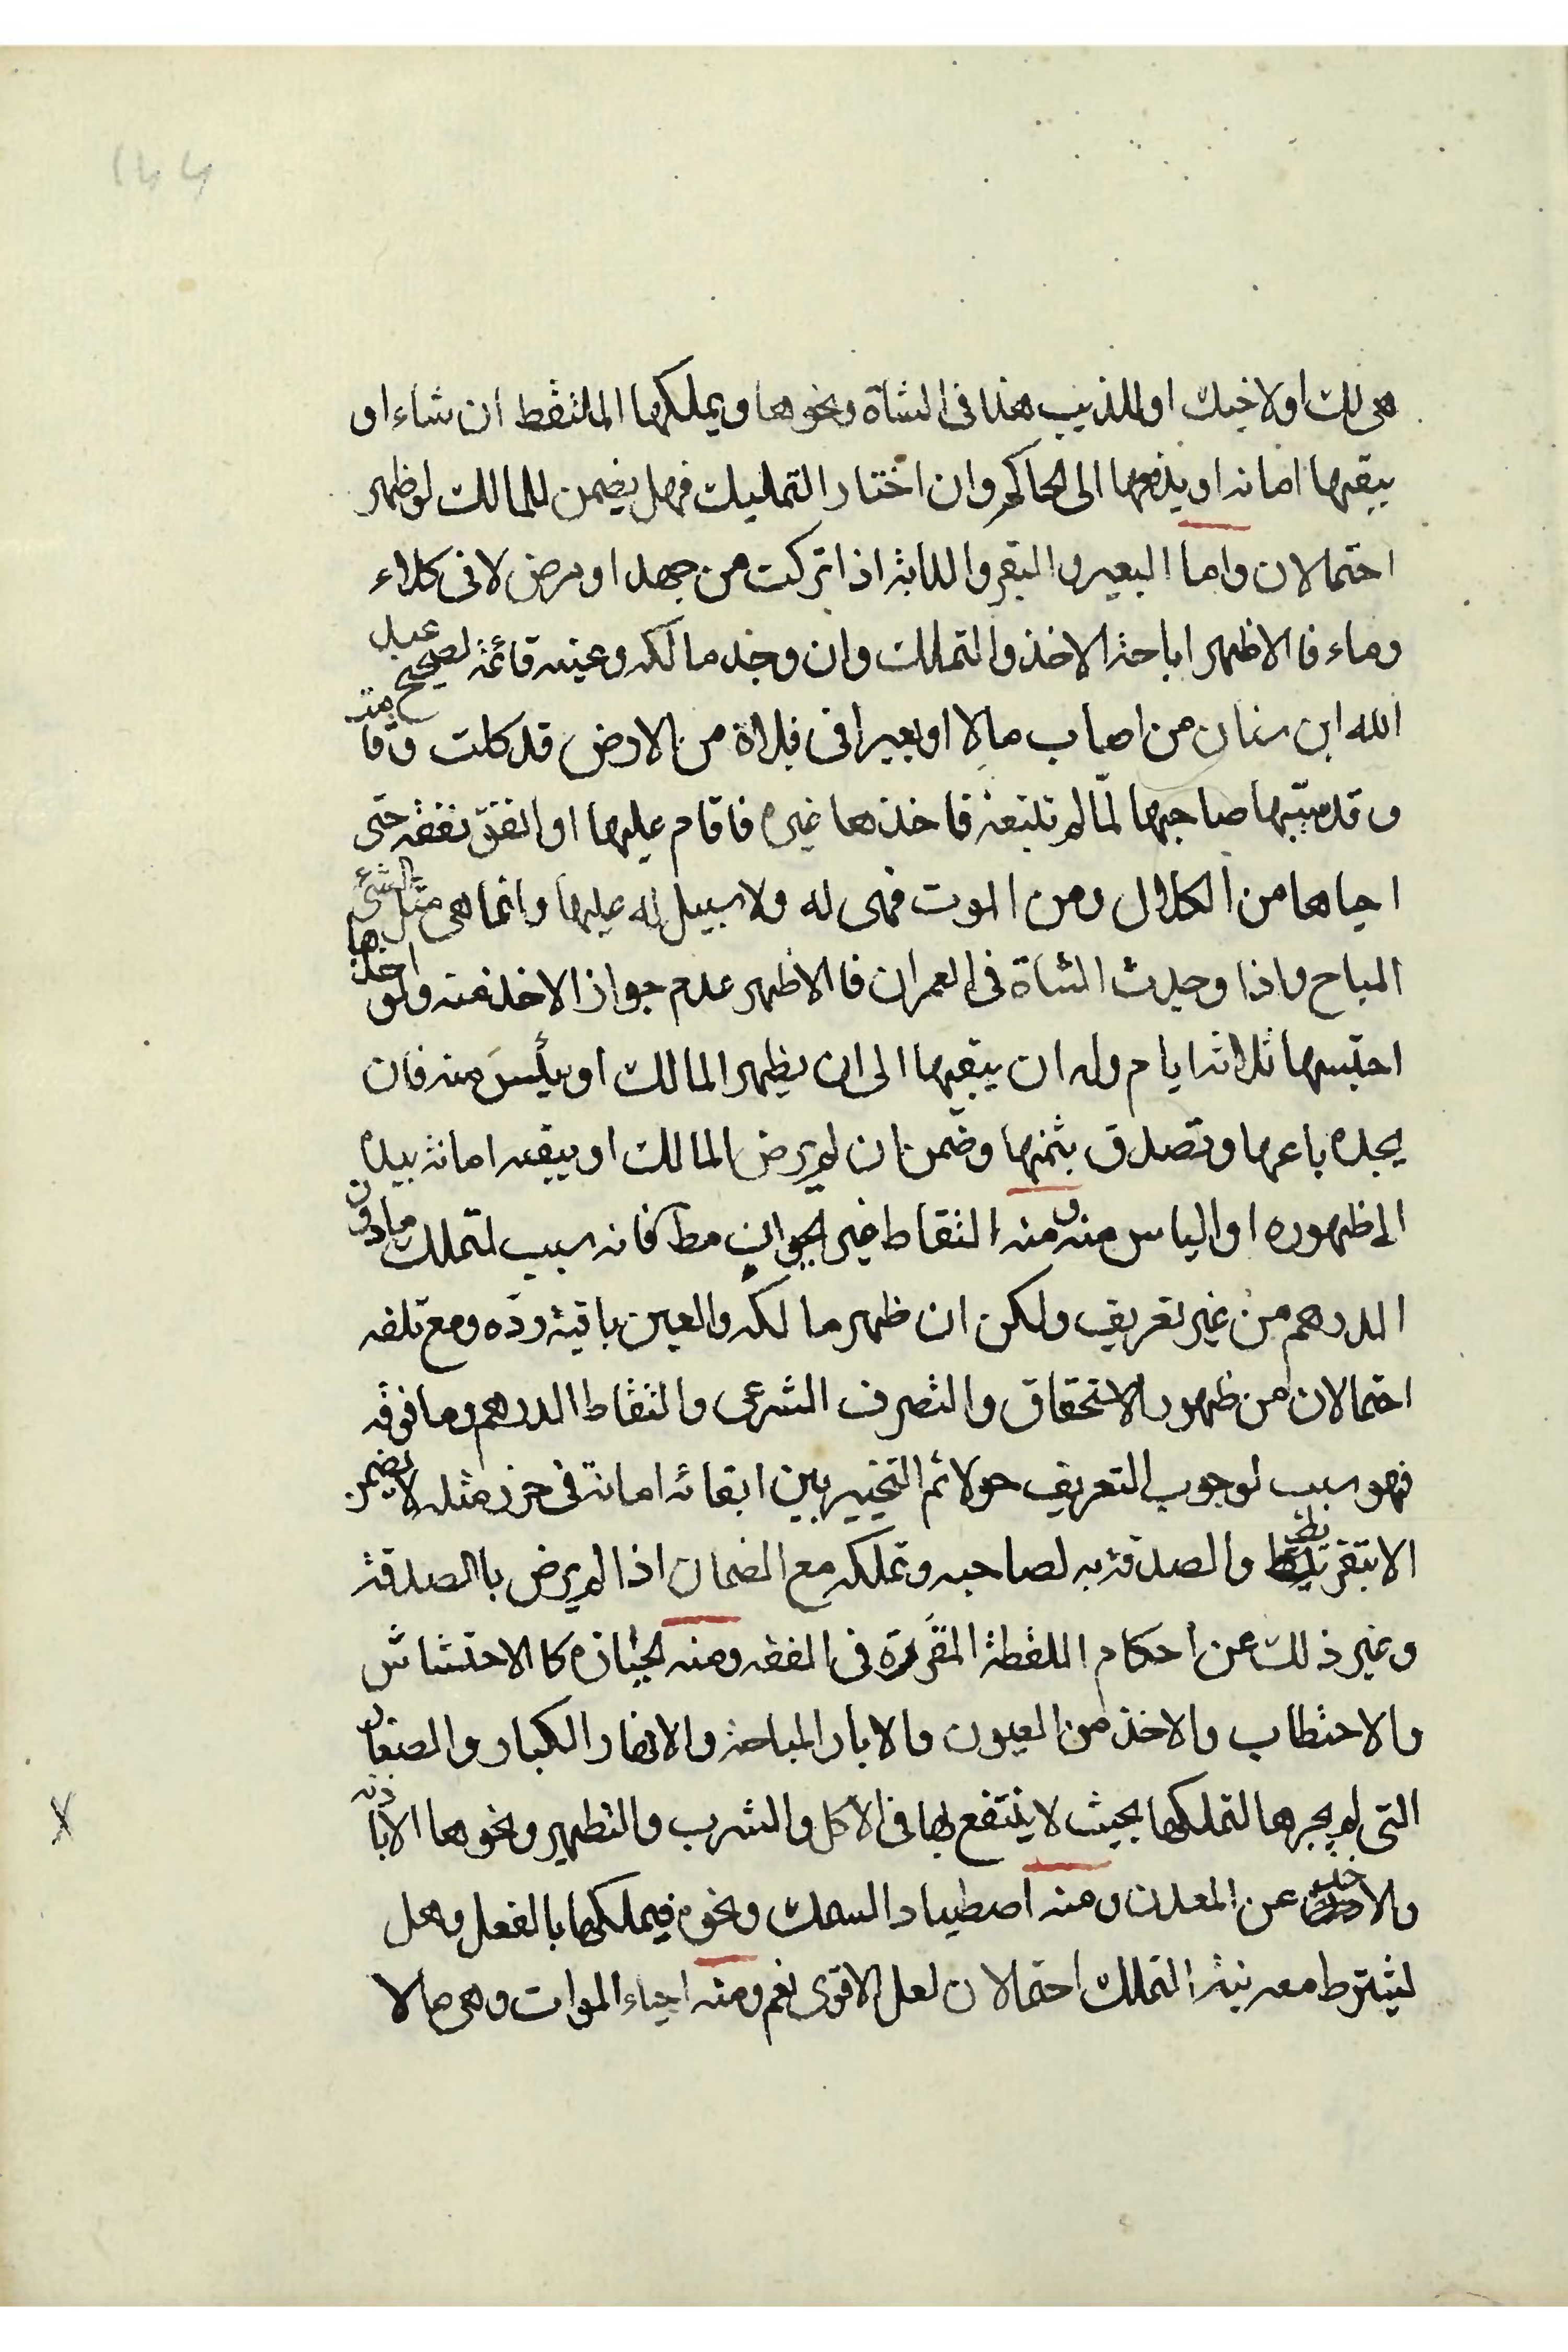 ١٤٤
هى لك او لاخيك او للذيب هذا فى الشاة ونحوها ويملكها الملتقط ان شاء او
يبقيها امانة او يدفعها الى الحاكم وان اختار التمليك فهل يضمن للمالك لو ظهر
احتمالان واما البعير والبقر والدابة اذا تركت من جهد او مرض لا فى كلاء
وماء فالاظهر اباحة الاخذ والتملك وان وجد مالكه وعينه قائمة لصحيح عبد
الله ابن سنان من اصاب مالا او بعيرا فى فلاة من الارض قد كلت وقامت
وقد سيبها صاحبها لما لم تتبعه فاخذها غيره فاقام عليها او انفق نفقة حتى
احياها من الكلال ومن الموت فهى له ولا سبيل له عليها وانما هى مثل الشئ
المباح واذا وجدت الشاة فى العمران فالاظهر عدم جواز الاخذ منه ولو اخذها
احتبسها ثلاثة ايام وله ان يبقيها الى ان يظهر المالك او ييأس منه فان
يجده باعها وتصدق بثمنها وضمن ان لم يرض المالك او يبقيه امانة بيده
الى ظهوره او الياس منه ومنه التقاط غير الحيوان مط فانه سبب لتملك مادون
الدرهم من غير تعريف ولكن ان ظهر مالكه والعين باقية رده ومع تلفه
احتمالان من ظهور الاستحقاق والتصرف الشرعى والتقاط الدرهم وما فوقه
فهو سبب لوجوب التعريف حولا ثم التخيير بين ابقائه امانة فى حرز مثله لا يضمن
الا بتفريط والصدقة به لصاحبه وتملكه مع الضمان اذا لم يرض باالصدقة
وغير ذلك عن احكام اللقطة المقررة فى الفقه ومنه الحيازة كا الاحتشاش
والاحتطاب والاخذ من العيون والابار المباحة والانهار الكبار والصغار
التى لم يجرها لتملكها بحيث لا ينتفع بها فى الاكل والشرب والتطهير ونحوها الا باذنه
والاخذ عن المعدن ومنه اصطياد السمك ونحوه فيملكها بالفعل وهل
ليشترط معه نية التملك احتمالان لعل الاقوى نعم ومنه احياء الموات وهى مالا